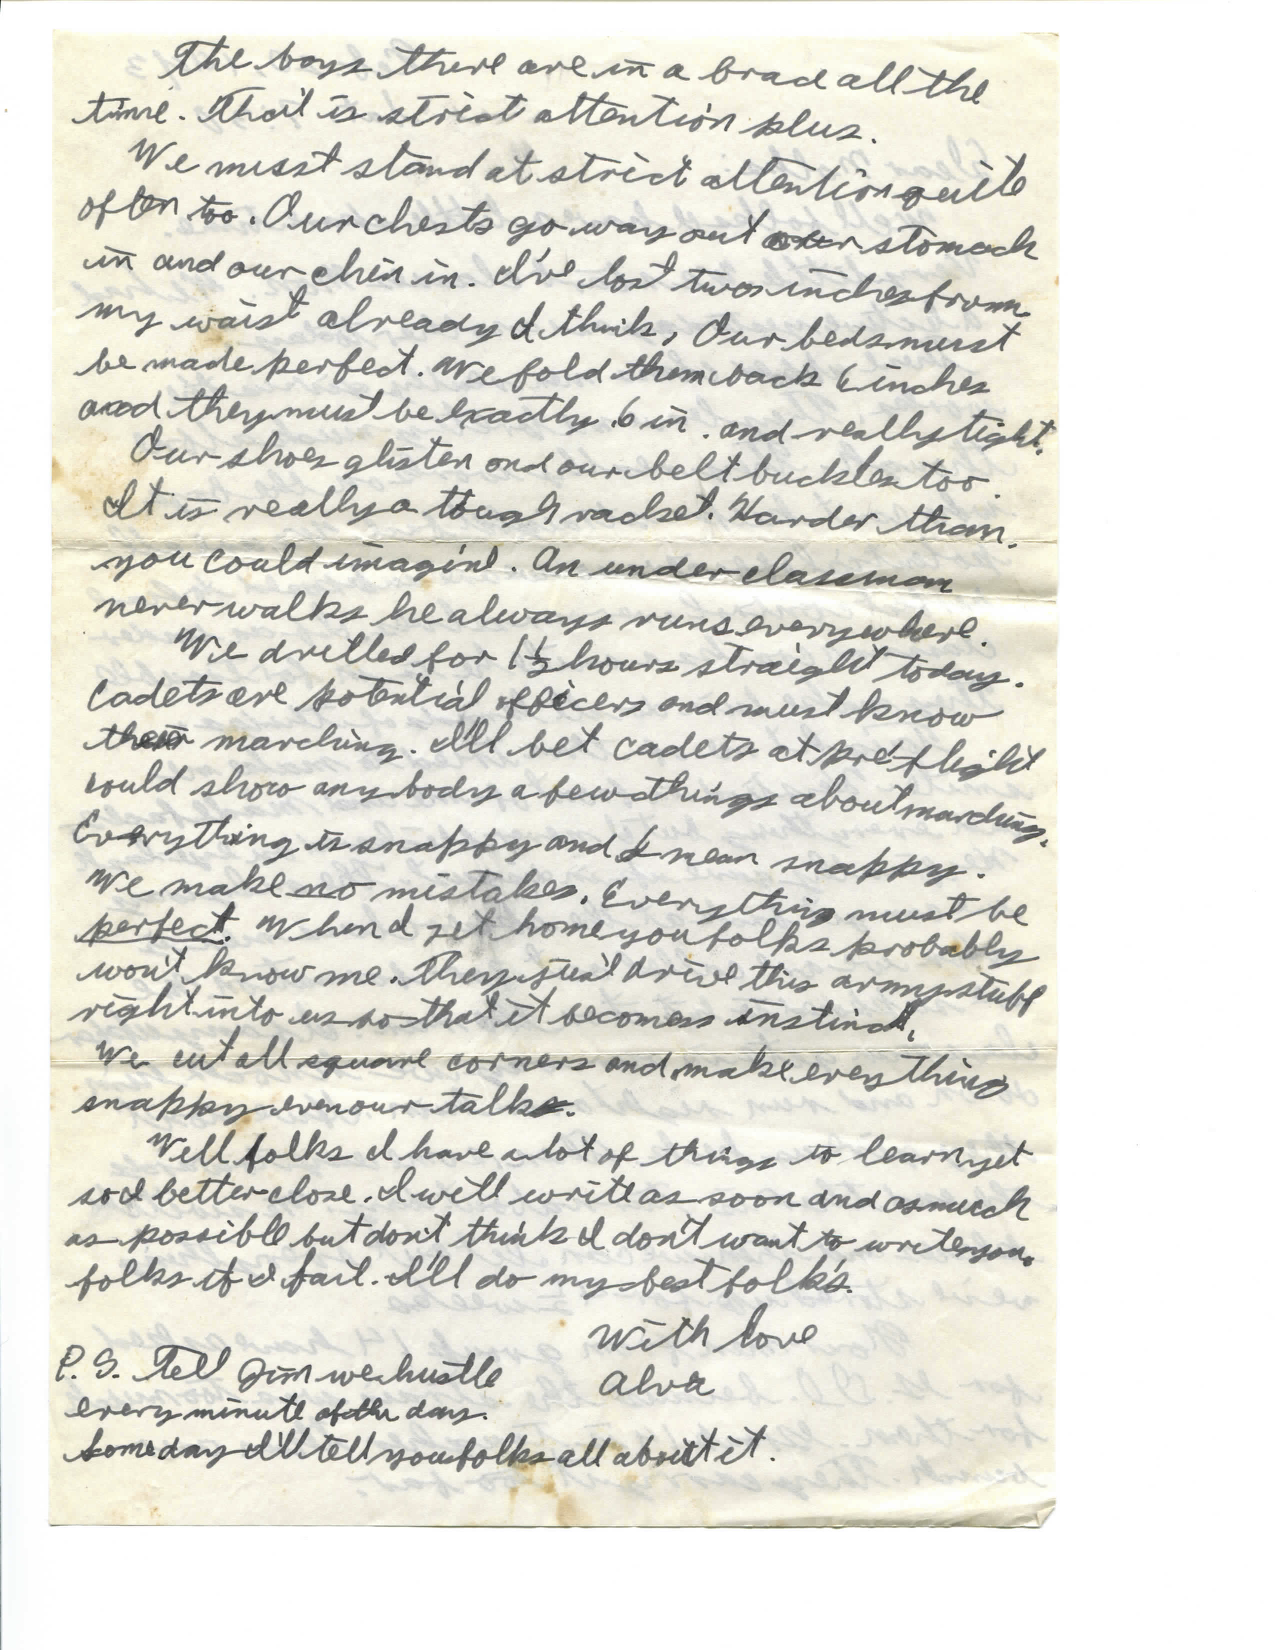 The boys there are in a brad all the
time. That is strict attention plus.
We musst stand at strict attention quite
often too. Our chests go way out our stomach
in and our chin in. I've lost two inches from
my waist already I think. Our beds must
be made perfect. We fold them back 6 inches
and they must be exactly 6 in. and really tight.
Our shoes glisten and our belt buckles too.
It is really a tough racket. Harder than
you could imagine. An under classman
never walks he always runs everywhere.
We drilled for 1½ hours straight today.
Cadets are potential officers and must know
their marching. I'll bet cadets at pre-flight
could show anybody a few things about marching.
Everything is snappy and I mean snappy.
We make no mistakes. Everything must be
perfect. When I get home you folks probably
won't know me. They just drive this army stuff
right into us so that it becomes instinct.
We cut all square corners and make everything
snappy even our talk.
Well folks I have a lot of things to learn yet
so I better close. I will write as soon and as much
as possible but don't think I don't want to write you
folks if I fail. I'll do my best folks.
With love
Alva
P. S. Tell Jim we hustle
every minute of the day.
Someday I'll tell you folks all about it.